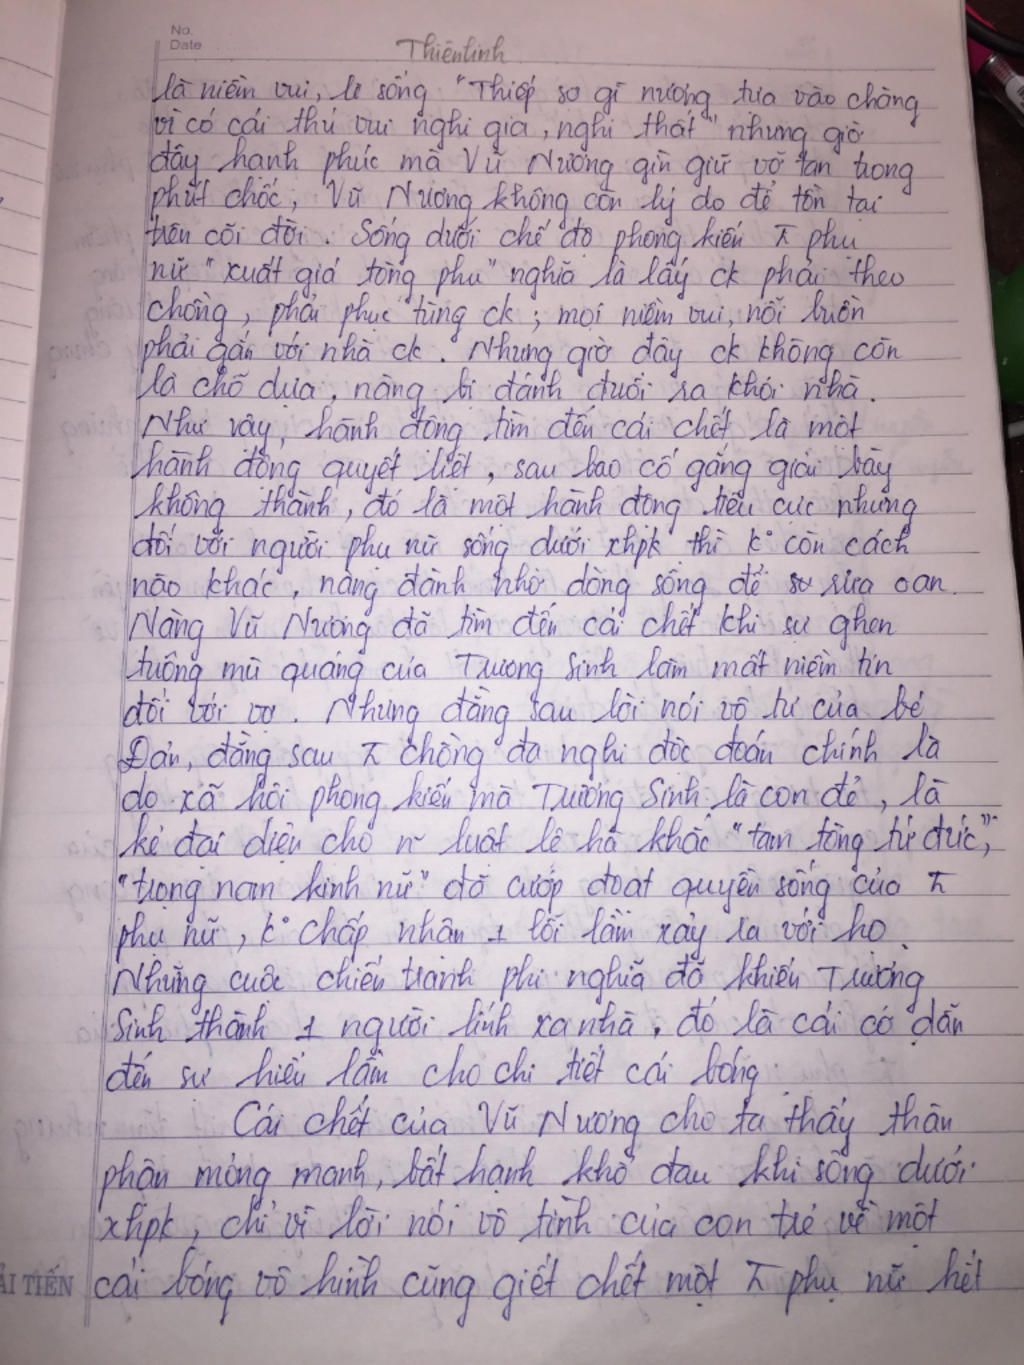 No.
Date
Thiên lình
là niềm vui, lẽ sống "Thiếp sơ gĩ nương tựa vào chàng
vì có cái thú vui nghi gia, nghi thất" nhưng giờ
đây hạnh phúc mà Vũ Nương gìn giữ vỡ tan trong
phút chốc, Vũ Nương không còn lý do để tồn tại
trên cõi đời. Sống dưới chế độ phong kiến phụ
nữ "xuất giá tòng phu" nghĩa là lấy ck phải theo
chồng, phải phục tùng ck; mọi niềm vui, nỗi buồn
phải gắn với nhà ck. Nhưng giờ đây ck không còn
là chỗ dựa, nàng bị đánh đuổi ra khỏi nhà.
Như vậy, hành động tìm đến cái chết là một
hành động quyết liệt, sau bao cố gắng giải bày
không thành, đó là một hành động tiêu cực nhưng
đối với người phụ nữ sống dưới xhpk thì k° còn cách
nào khác, nàng đành nhờ dòng sông để sự rửa oan.
Nàng Vũ Nương đã tìm đến cái chết khi sự ghen
tuông mù quáng của Trương Sinh làm mất niềm tin
đối với vợ. Nhưng đằng sau lời nói vô tư của bé
Đản, đằng sau chồng đa nghi độc đoán chính là
do xã hội phong kiến mà Trương Sinh là con đẻ, là
kẻ đại diện cho n~ luật lệ hà khắc "tam tòng tứ đức",
"trọng nam kinh nữ" đã cướp đoạt quyền sống của
phụ nữ, k° chấp nhận 1 lỗi lầm xảy ra với họ.
Những cuộc chiến tranh phi nghĩa đã khiến Trương
Sinh thành 1 người lính xa nhà, đó là cái cớ dẫn
đến sự hiểu lầm cho chi tiết cái bóng.
Cái chết của Vũ Nương cho ta thấy thân
phận mỏng manh, bất hạnh khổ đau khi sống dưới
xhpk, chỉ vì lời nói vô tình của con trẻ về một
cái bóng vô hình cũng giết chết một phụ nữ hết
ẢI TIẾN